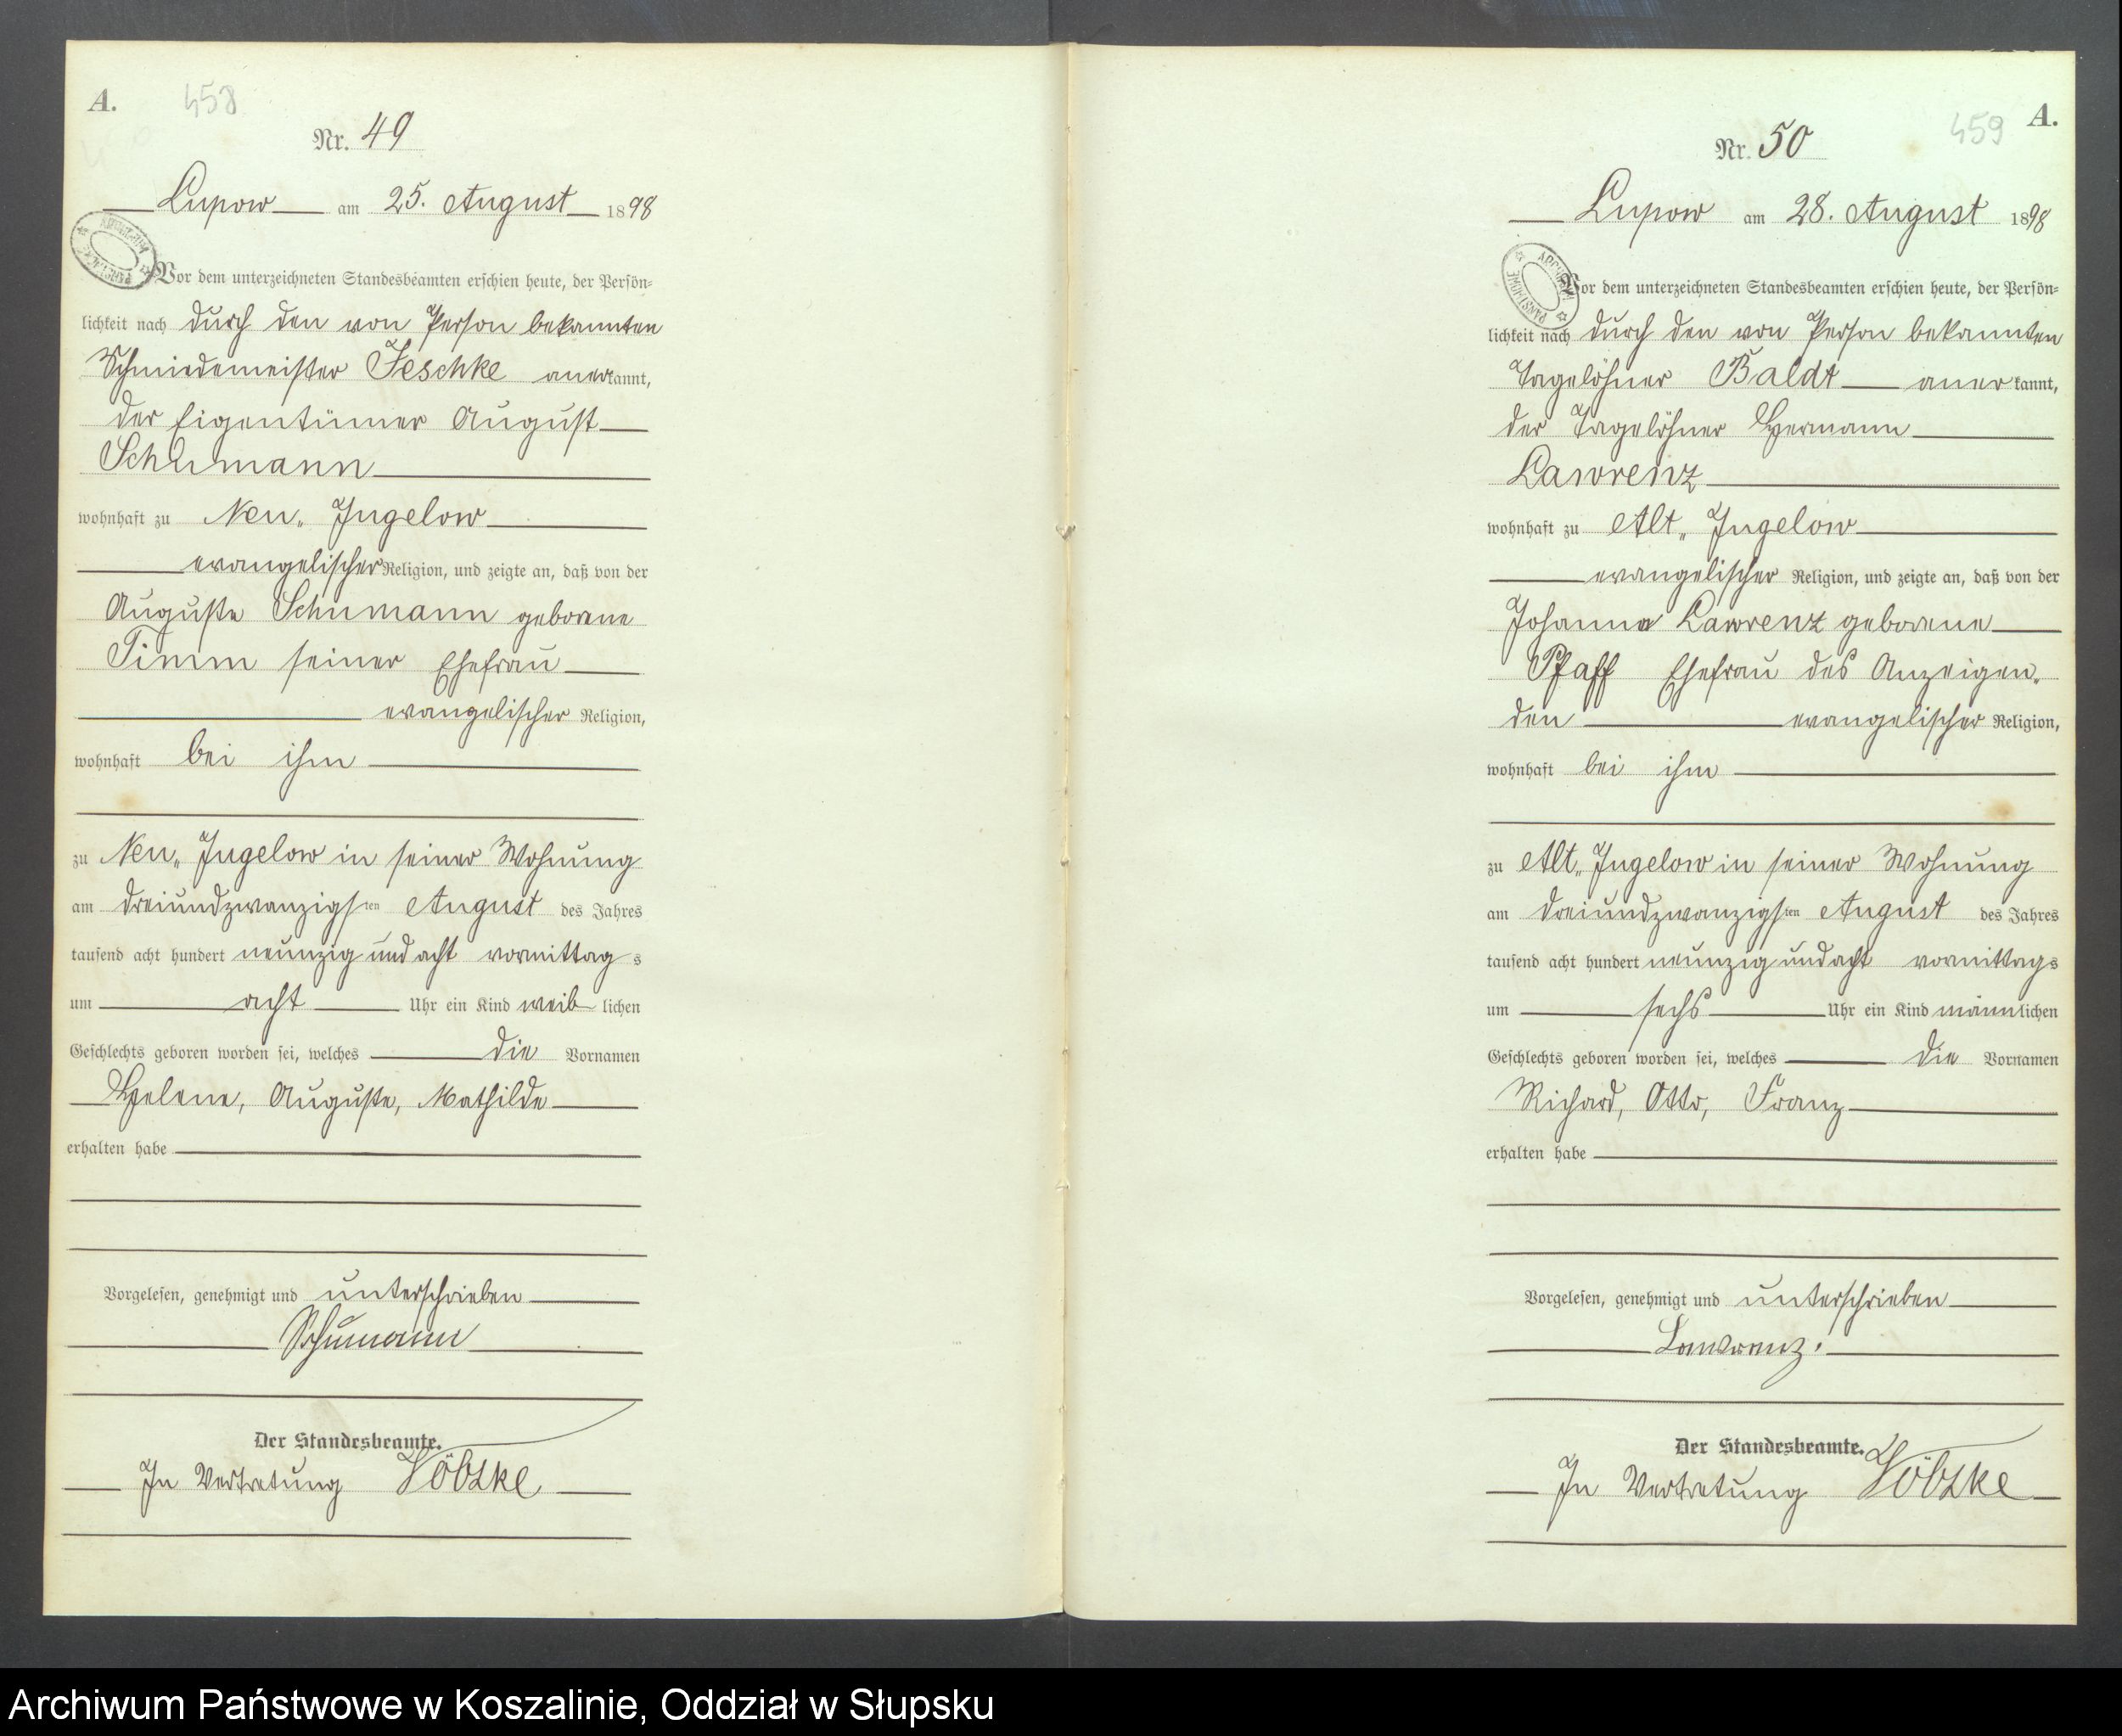 A.
458
Nr. 49
Lupow am 25. August 1898
Vor dem unterzeichneten Standesbeamten erschien heute, der Persön-
lichkeit nach durch den von Person bekannten
Schmiedemeister Jeschke anerkannt,
der Eigentümer August
Schumann
wohnhaft zu Neu„ Jugelow
evangelischer Religion, und zeigte an, daß von der
Auguste Schumann geborene
Timm seiner Ehefrau
evangelischer Religion,
wohnhaft bei ihm
zu Neu„ Jugelow in seiner Wohnung
am dreiundzwanzigsten August des Jahres
tausend acht hundert neunzig und acht vormittags
um acht Uhr ein Kind weiblichen
Geschlechts geboren worden sei, welches die Vornamen
Helene, Auguste, Mathilde
erhalten habe
Vorgelesen, genehmigt und unterschrieben
Schumann
Der Standesbeamte.
In Vertretung
A.
459
Nr. 50
Lupow am 28. August 1898
Vor dem unterzeichneten Standesbeamten erschien heute, der Persön-
lichkeit nach durch den von Person bekannten
Tagelöhner Baldt anerkannt,
der Tagelöhner Hermann
Lawrenz
wohnhaft zu Alt„ Jugelow
evangelischer Religion, und zeigte an, daß von der
Johanna Lawrenz geborene
Pfaff Ehefrau des Anzeigen„
den evangelischer Religion,
wohnhaft bei ihm
zu Alt„ Jugelow in seiner Wohnung
am dreiundzwanzigsten August des Jahres
tausend acht hundert neunzig und acht vormittags
um sechs Uhr ein Kind männlichen
Geschlechts geboren worden sei, welches die Vornamen
Richard, Otto, Franz
erhalten habe
Vorgelesen, genehmigt und unterschrieben
Lawrenz.
Der Standesbeamte.
In Vertretung
Archiwum Państwowe w Koszalinie, Oddział w Słupsku